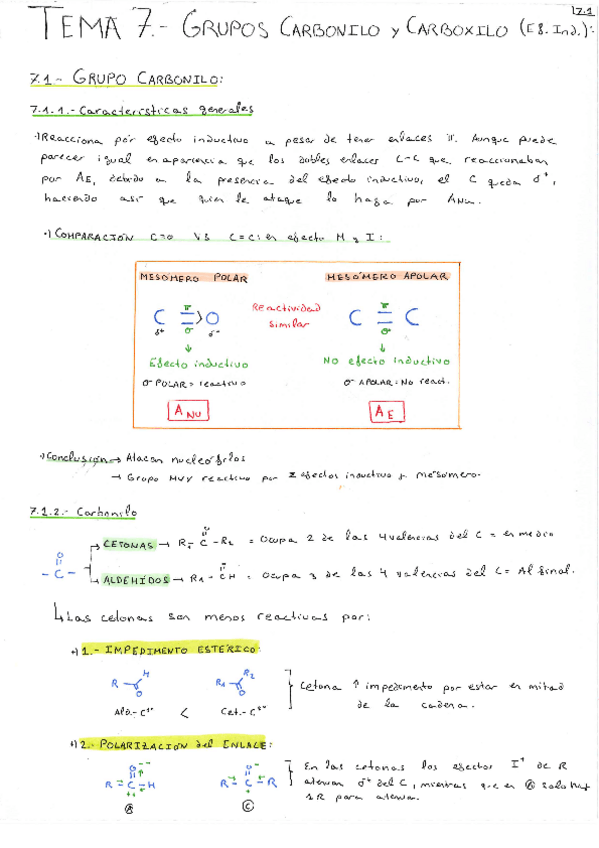 7.1
TEMA 7.- GRUPOS CARBONILO y CARBOXILO (E8. Ind.):
7.1.- GRUPO CARBONILO:
7.1.1.- Características generales
Reacciona por efecto inductivo a pesar de tener enlaces π. Aunque puede
parecer igual en apariencia que los dobles enlaces C-C que reaccionaban
por AE, debido a la presencia del efecto inductivo, el C queda δ+,
haciendo así que quien le ataque lo haga por ANu.
COMPARACIÓN C=O VS C=C: en efecto M y I:
MESÓMERO POLAR
MESÓMERO APOLAR
C π σ O
δ+ δ-
Reactividad
similar
C π σ C
Efecto inductivo
No efecto Inductivo
σ POLAR = reactivo
σ APOLAR = No react.
ANU
AE
Conclusión → Atacan nucleófilos
→ Grupo MUY reactivo por 2 efectos inductivo y mesómero.
7.1.2.- Carbonilo
O
- C -
CETONAS → R1 - C - R2 = Ocupa 2 de las 4 valencias del C = en medio
ALDEHÍDOS → R1 - CH = Ocupa 3 de las 4 valencias del C = Al final.
Las cetonas son menos reactivas por:
1.- IMPEDIMENTO ESTÉRICO:
R H O
R1 R2 O
Ald.- C1º < Cet.- C2º
Cetona ↑ impedimento por estar en mitad
de la cadena.
2.- POLARIZACIÓN del ENLACE:
O
R - C - H
A
O
R - C - R
C
En las cetonas los efectos I+ de R
atenúan δ+ del C, mientras que en A solo hay
1R para atenuar.